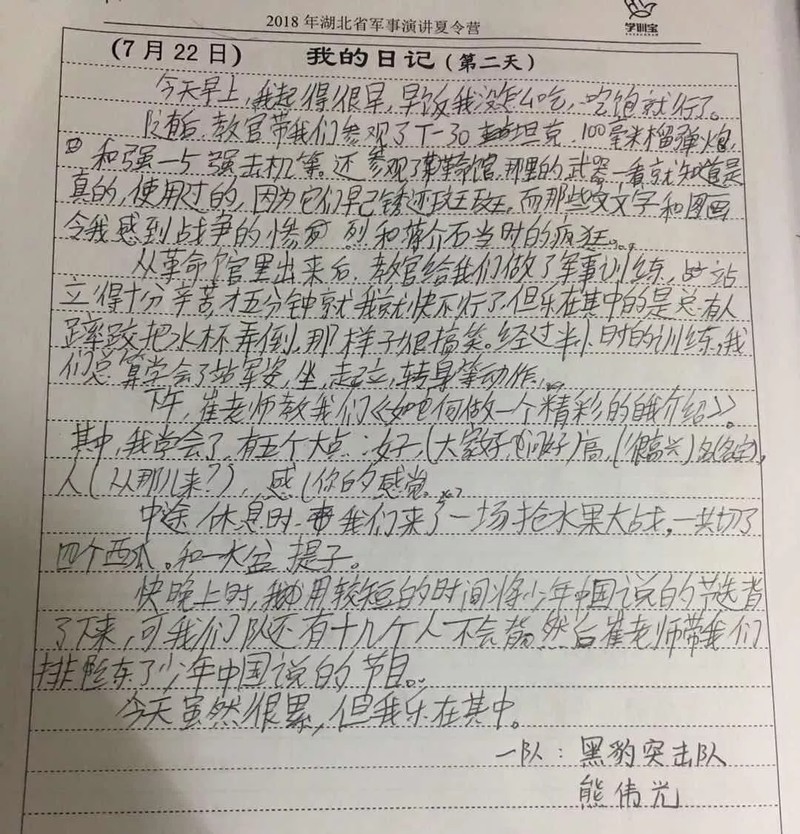 2018年湖北省军事演讲夏令营
学训宝
(7月22日) 我的日记(第二天)
今天早上,我起得很早,早饭我没怎么吃,吃饱就行了。
随后,教官带我们参观了T-30坦克,100毫米榴弹炮,
和强一5强击机等。还参观了革命馆,那里的武器一看就知道是
真的,使用过的,因为它们早已锈迹斑斑,而那些文字和图画
令我感到战争的惨烈和蒋介石当时的疯狂。
从革命馆里出来后,教官给我们做了军事训练,站
立得十分辛苦,才五分钟就我就快不行了,但乐在其中的是总有人
蹿跤把水杯弄倒,那样子很搞笑。经过半小时的训练,我
们总算学会了站军姿,坐,起立,转身等动作。
下午,崔老师教我们《如何做一个精彩的自我介绍》。
其中,我学会了,有五个大点:好,(大家好,们好)高,(很高兴)名(名字),
人(从那儿来?),感(你的感觉。)
中途休息时,我们来了一场抢水果大战,一共切了
四个西瓜。和一大盆提子。
快晚上时,我用较短的时间将少年中国说的节选背
了下来,可我们队还有十几个人不会背,然后崔老师带我们
排练了少年中国说的节目。
今天虽然很累,但我乐在其中。
一队:黑豹突击队
熊伟光